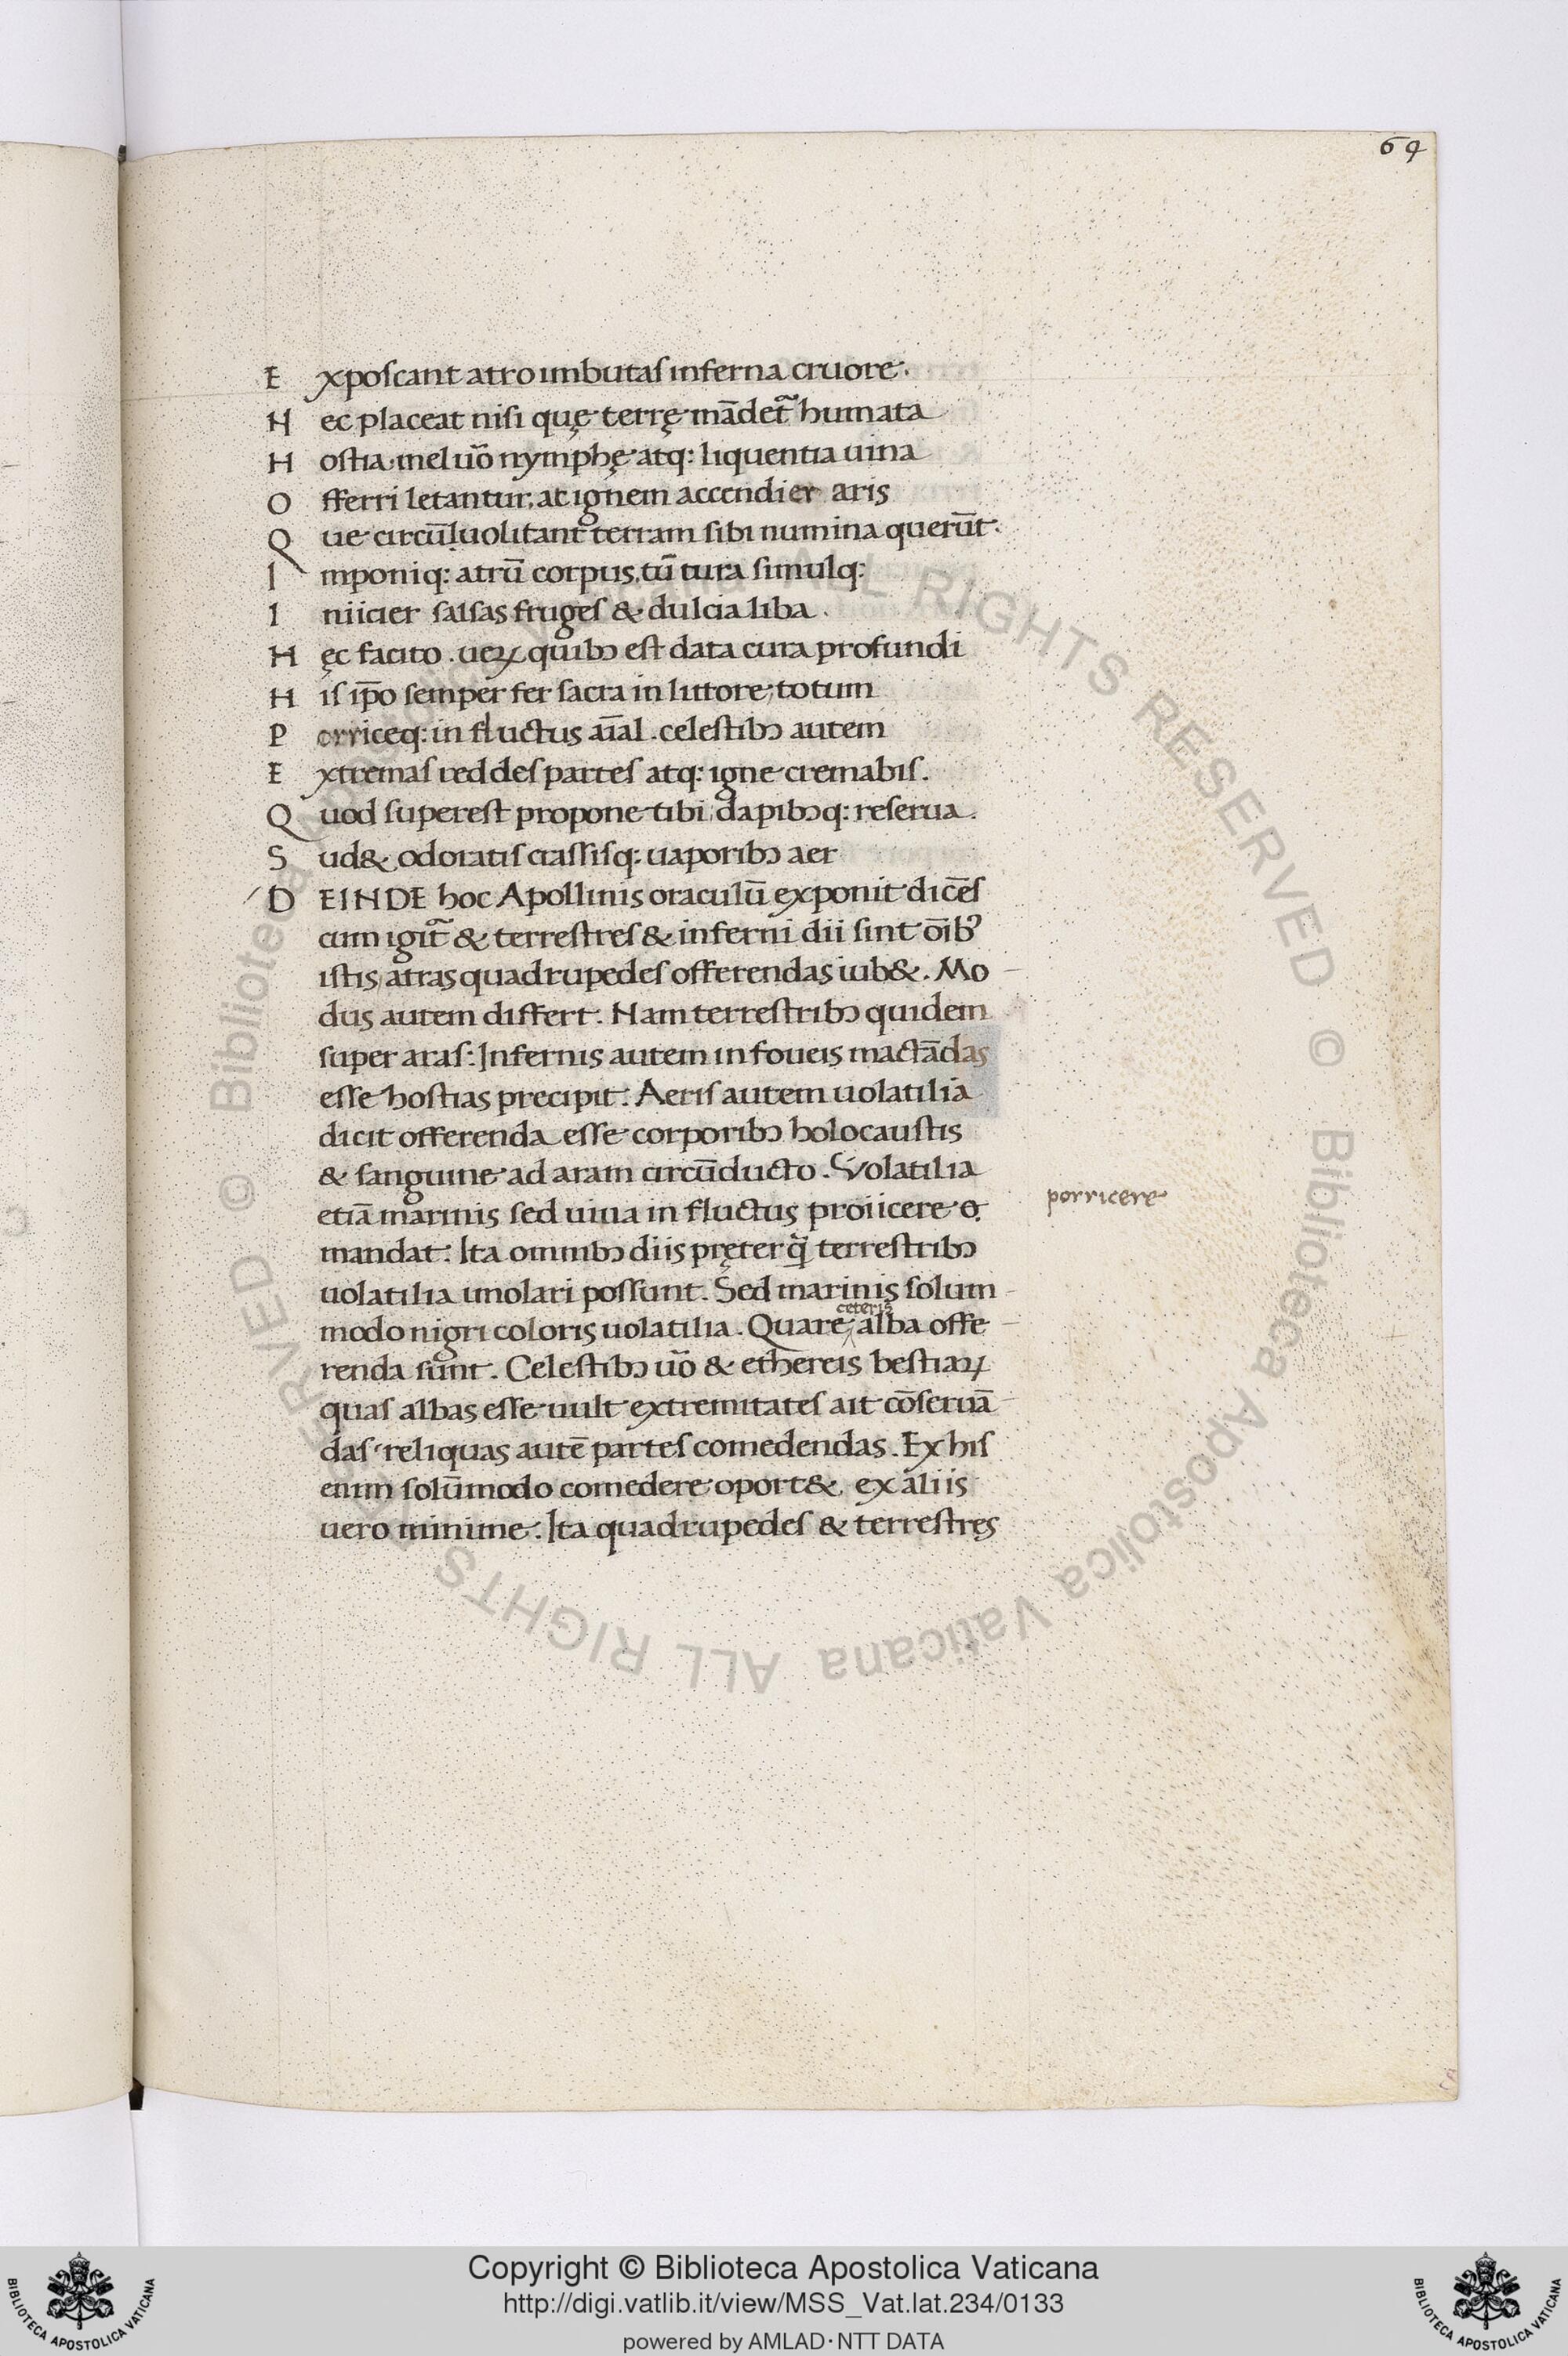 64
Exposcant atro imbutas inferna cruore.
Hec placeat nisi quę terrę mādet᷑ humata
Hostia. mel uo᷑ nymphę atq: liquentia uina
Offerri letantur, at ignem accendier aris
Que circūuolitant terram sibi numina querūt.
Imponiq: atrū corpus, tū tura simulq:
Iniicier salsas fruges & dulcia liba.
Hęc facito. ueꝝ quibꝫ est data cura profundi
His ip̄o semper fer sacra in littore, totum
Porriceq: in fluctus aīal. celestibꝫ autem
Extremas reddes partes atq: igne cremabis.
Quod superest propone tibi, dapibꝫq: reserua.
Sud& odoratis crassisq: uaporibꝫ aer
DEINDE hoc Apollinis oraculū exponit dicēs
cum igit᷑ & terrestres & inferni dii sint oīb᾽
istis atras quadrupedes offerendas iub&. Mo
dus autem differt. Nam terrestribꝫ quidem
super aras: Infernis autem in foueis mactādas
esse hostias precipit: Aeris autem uolatilia
dicit offerenda esse corporibꝫ holocaustis
& sanguine ad aram circūducto. Volatilia
etiā marinis sed uiua in fluctus proiicere
mandat: Ita omnibꝫ diis pręter q̄ terrestribꝫ
uolatilia imolari possunt. Sed marinis solum
modo nigri coloris uolatilia. Quare ceteris alba offe
renda sunt. Celestibꝫ uo᷑ & ethereis bestiaꝝ
quas albas esse uult extremitates ait cōseruā
das reliquas autē partes comedendas. Ex his
enim solūmodo comedere oport&, ex aliis
uero minime. Ita quadrupedes & terrestres
porricere
Copyright © Biblioteca Apostolica Vaticana
http://digi.vatlib.it/view/MSS_Vat.lat.234/0133
powered by AMLAD·NTT DATA
BIBLIOTECA APOSTOLICA VATICANA
BIBLIOTECA APOSTOLICA VATICANA
© Biblioteca Apostolica Vaticana ALL RIGHTS RESERVED © Biblioteca Apostolica Vaticana ALL RIGHTS RESERVED